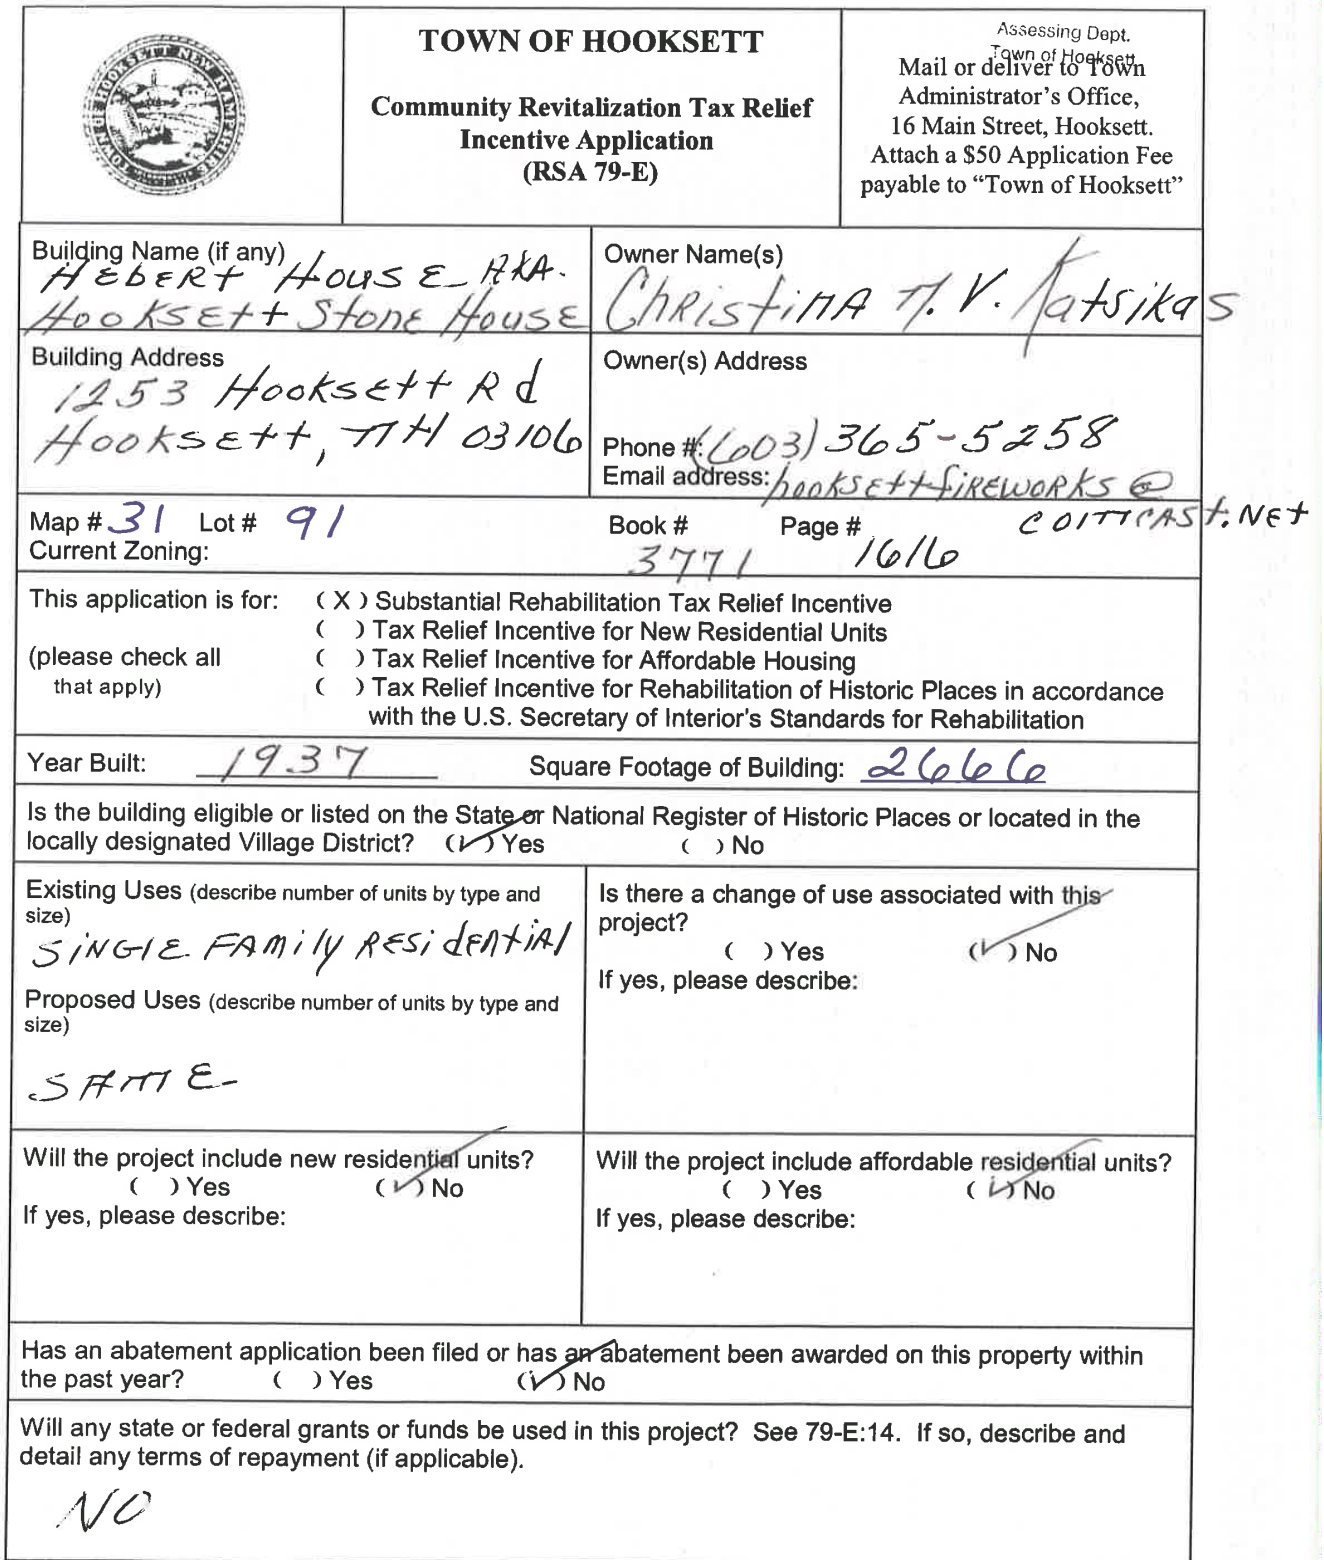 TOWN OF HOOKSETT NEW HAMPSHIRE
TOWN OF HOOKSETT
Community Revitalization Tax Relief
Incentive Application
(RSA 79-E)
Assessing Dept.
Town of Hooksett
Mail or deliver to Town
Administrator's Office,
16 Main Street, Hooksett.
Attach a $50 Application Fee
payable to "Town of Hooksett"
Building Name (if any)
HEbERt House AKA.
HOOKSEtt Stone House
Owner Name(s)
ChRistinA M. V. Katsikas
Building Address
1253 Hooksett Rd
Hooksett, NH 03106
Owner(s) Address
Phone #: (603) 365-5258
Email address: hooksettfireworks@
comcast.net
Map # 31 Lot # 91
Book # Page #
Current Zoning:
3771 1616
This application is for: ( X ) Substantial Rehabilitation Tax Relief Incentive
( ) Tax Relief Incentive for New Residential Units
(please check all ( ) Tax Relief Incentive for Affordable Housing
that apply) ( ) Tax Relief Incentive for Rehabilitation of Historic Places in accordance
with the U.S. Secretary of Interior's Standards for Rehabilitation
Year Built: 1937 Square Footage of Building: 2666
Is the building eligible or listed on the State or National Register of Historic Places or located in the
locally designated Village District? (✓) Yes ( ) No
Existing Uses (describe number of units by type and
size)
SiNGlE FAmily RESidENtiAl
Proposed Uses (describe number of units by type and
size)
SAME
Is there a change of use associated with this
project?
( ) Yes (✓) No
If yes, please describe:
Will the project include new residential units?
( ) Yes (✓) No
If yes, please describe:
Will the project include affordable residential units?
( ) Yes (✓) No
If yes, please describe:
Has an abatement application been filed or has an abatement been awarded on this property within
the past year? ( ) Yes (✓) No
Will any state or federal grants or funds be used in this project? See 79-E:14. If so, describe and
detail any terms of repayment (if applicable).
NO